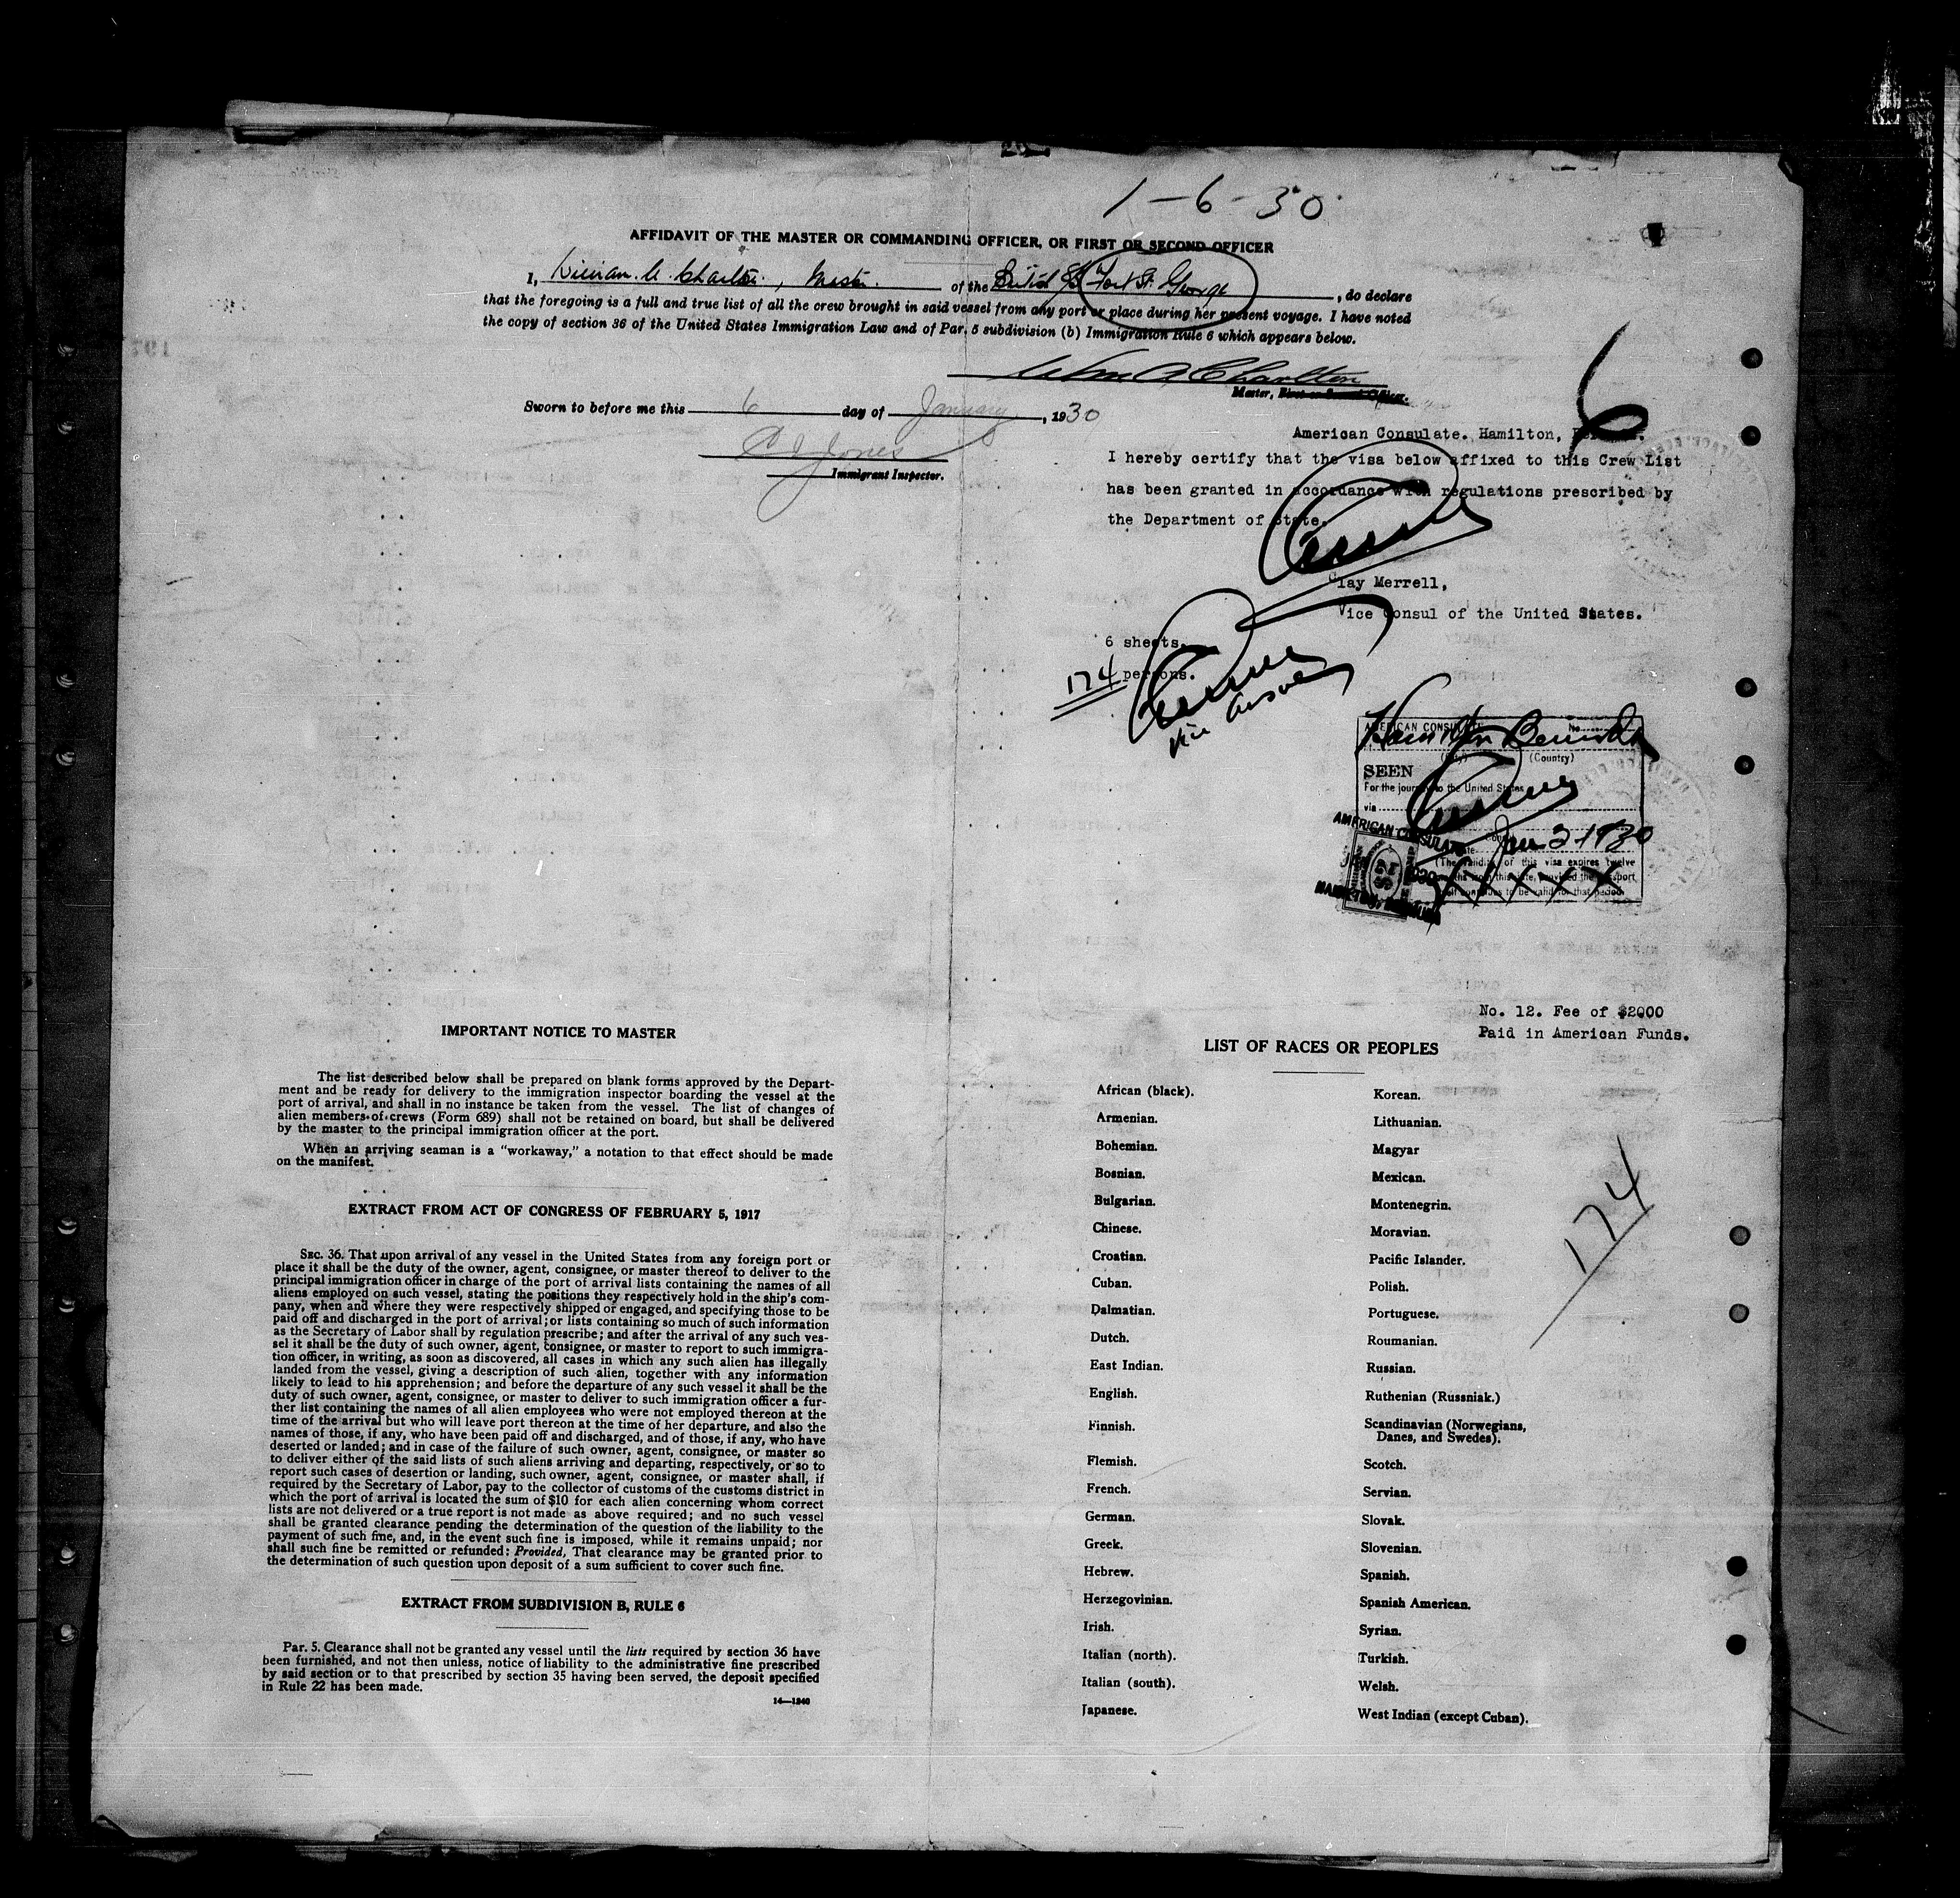 1-6-30
AFFIDAVIT OF THE MASTER OR COMMANDING OFFICER, OR FIRST OR SECOND OFFICER
I, William A. Charlton, Master. of the British S/S Fort St. George, do declare
that the foregoing is a full and true list of all the crew brought in said vessel from any port or place during her present voyage. I have noted
the copy of section 36 of the United States Immigration Law and of Par. 5 subdivision (b) Immigration Rule 6 which appears below.
Wm A Charlton
Master, First or Second Officer.
Sworn to before me this 6 day of January, 1930
Jones
Immigrant Inspector.
6
American Consulate. Hamilton,
I hereby certify that the visa below affixed to this Crew List
has been granted in accordance with regulations prescribed by
the Department of State.
Clay Merrell,
Vice Consul of the United States.
6 sheets.
174 persons.
Vice Consul
AMERICAN CONSULATE No.
Hamilton Bermuda
(City) (Country)
SEEN
For the journey to the United States
via
Jan 2 1930
(The validity of this visa expires twelve
months from this date, provided the passport
continues to be valid for that period)
XXXXX
AMERICAN CONSULATE
JAN 2 1930
HAMILTON, BERMUDA
No. 12. Fee of $2000
Paid in American Funds.
IMPORTANT NOTICE TO MASTER
The list described below shall be prepared on blank forms approved by the Depart-
ment and be ready for delivery to the immigration inspector boarding the vessel at the
port of arrival, and shall in no instance be taken from the vessel. The list of changes of
alien members of crews (Form 689) shall not be retained on board, but shall be delivered
by the master to the principal immigration officer at the port.
When an arriving seaman is a "workaway," a notation to that effect should be made
on the manifest.
EXTRACT FROM ACT OF CONGRESS OF FEBRUARY 5, 1917
SEC. 36. That upon arrival of any vessel in the United States from any foreign port or
place it shall be the duty of the owner, agent, consignee, or master thereof to deliver to the
principal immigration officer in charge of the port of arrival lists containing the names of all
aliens employed on such vessel, stating the positions they respectively hold in the ship's com-
pany, when and where they were respectively shipped or engaged, and specifying those to be
paid off and discharged in the port of arrival; or lists containing so much of such information
as the Secretary of Labor shall by regulation prescribe; and after the arrival of any such ves-
sel it shall be the duty of such owner, agent, consignee, or master to report to such immigra-
tion officer, in writing, as soon as discovered, all cases in which any such alien has illegally
landed from the vessel, giving a description of such alien, together with any information
likely to lead to his apprehension; and before the departure of any such vessel it shall be the
duty of such owner, agent, consignee, or master to deliver to such immigration officer a fur-
ther list containing the names of all alien employees who were not employed thereon at the
time of the arrival but who will leave port thereon at the time of her departure, and also the
names of those, if any, who have been paid off and discharged, and of those, if any, who have
deserted or landed; and in case of the failure of such owner, agent, consignee, or master so
to deliver either of the said lists of such aliens arriving and departing, respectively, or so to
report such cases of desertion or landing, such owner, agent, consignee, or master shall, if
required by the Secretary of Labor, pay to the collector of customs of the customs district in
which the port of arrival is located the sum of $10 for each alien concerning whom correct
lists are not delivered or a true report is not made as above required; and no such vessel
shall be granted clearance pending the determination of the question of the liability to the
payment of such fine, and, in the event such fine is imposed, while it remains unpaid; nor
shall such fine be remitted or refunded: Provided, That clearance may be granted prior to
the determination of such question upon deposit of a sum sufficient to cover such fine.
EXTRACT FROM SUBDIVISION B, RULE 6
Par. 5. Clearance shall not be granted any vessel until the lists required by section 36 have
been furnished, and not then unless, notice of liability to the administrative fine prescribed
by said section or to that prescribed by section 35 having been served, the deposit specified
in Rule 22 has been made.
14—1240
LIST OF RACES OR PEOPLES
African (black).
Armenian.
Bohemian.
Bosnian.
Bulgarian.
Chinese.
Croatian.
Cuban.
Dalmatian.
Dutch.
East Indian.
English.
Finnish.
Flemish.
French.
German.
Greek.
Hebrew.
Herzegovinian.
Irish.
Italian (north).
Italian (south).
Japanese.
Korean.
Lithuanian.
Magyar
Mexican.
Montenegrin.
Moravian.
Pacific Islander.
Polish.
Portuguese.
Roumanian.
Russian.
Ruthenian (Russniak.)
Scandinavian (Norwegians,
Danes, and Swedes).
Scotch.
Servian.
Slovak.
Slovenian.
Spanish.
Spanish American.
Syrian.
Turkish.
Welsh.
West Indian (except Cuban).
174